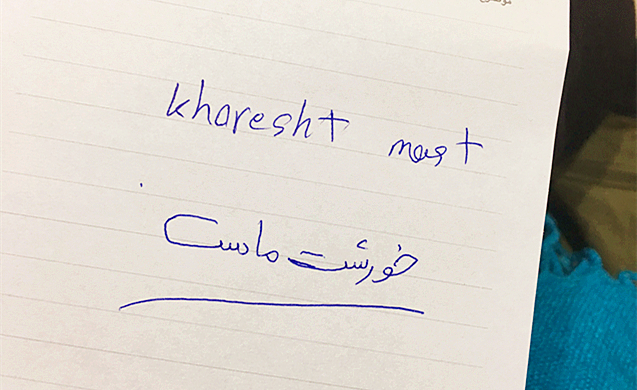 kharesht mast
خورشت ماست